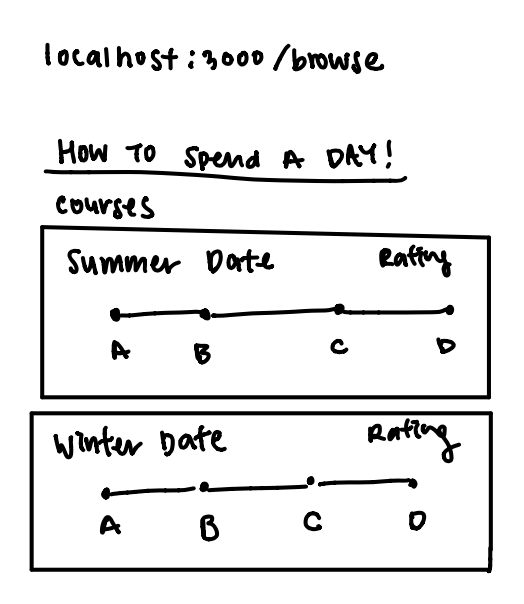 localhost:3000/browse
HOW TO Spend A DAY!
courses
Summer Date Rating
A B C D
Winter Date Rating
A B C D